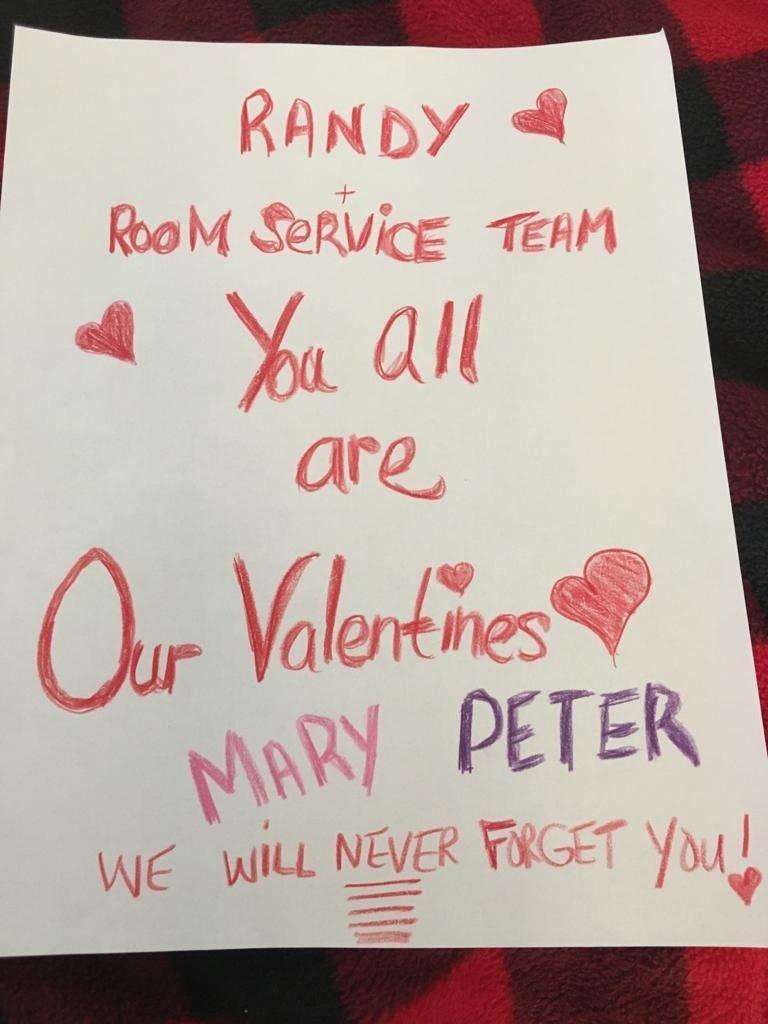 RANDY
+
ROOM SERViCE TEAM
You all
are
Our Valentines
MARY PETER
WE WiLL NEVER FORGET YOU!